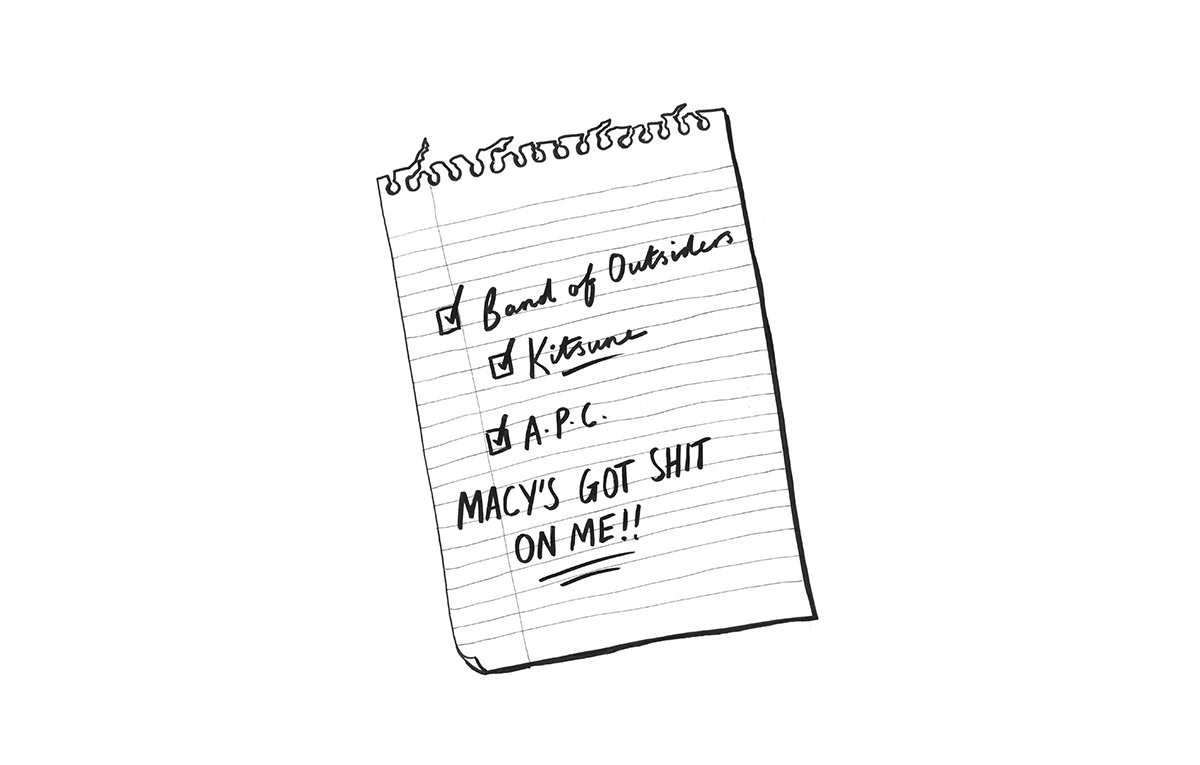 Band of Outsiders
Kitsune
A.P.C.
MACY'S GOT SHIT
ON ME!!